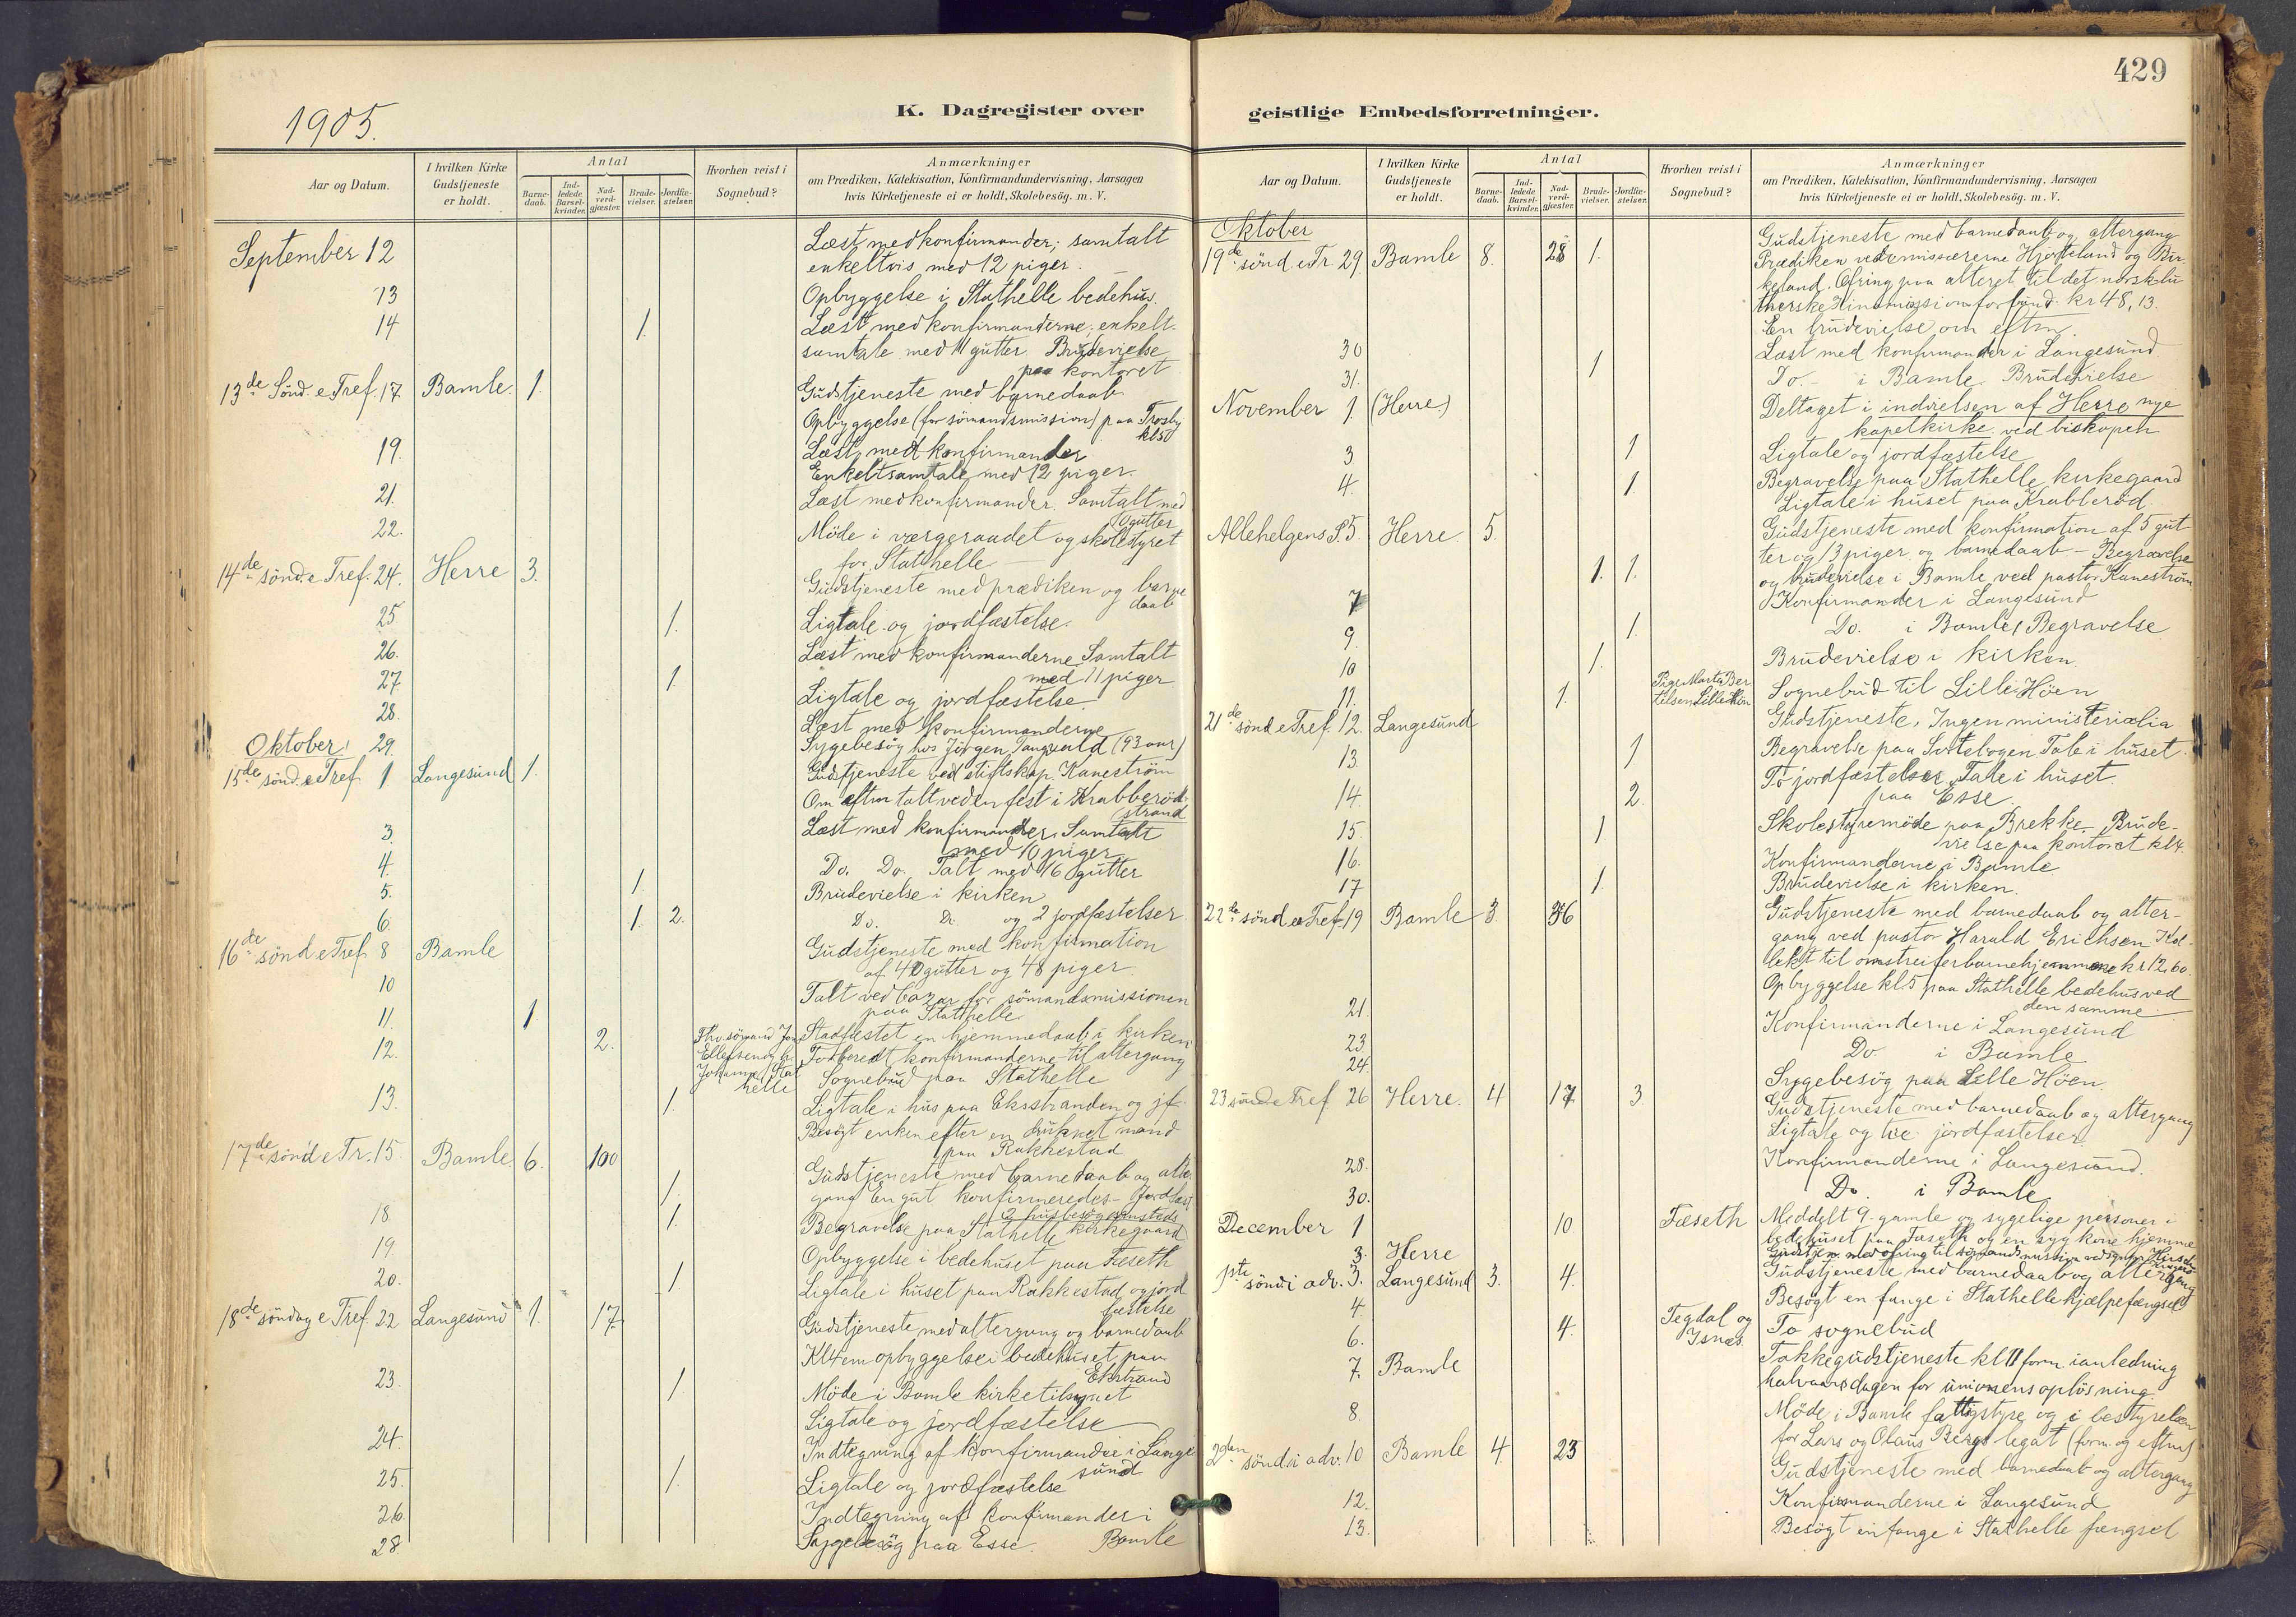 429
1905.
K. Dagregister over geistlige Embedsforretninger.
Aar og Datum.
I hvilken Kirke Gudstjeneste er holdt.
Antal
Barnedaab.
Indledede Barselkvinder.
Nadverdgjæster.
Brudevielser.
Jordfæstelser.
Hvorhen reist i Sognebud?
Anmærkninger
om Prædiken, Katekisation, Konfirmandundervisning, Aarsagen
hvis Kirketjeneste ei er holdt, Skolebesög. m. V.
September 12 Læst med konfirmander; samtalt
enkeltvis med 12 piger.
13 Opbyggelse i Stathelle bedehus.
14 1. Læst med konfirmanderne; enkelt-
samtale med 11 gutter Brudevielse
paa kontoret
13de Sönd. e. Tref. 17. Bamle. 1. Gudstjeneste med barnedaab
Opbyggelse (for sömandsmission) paa Trosby
kl 5
19. Læst med konfirmander
Enkeltsamtale med 12 piger.
21. Læst med konfirmander. Samtalt med
10 gutter
22. Möde i værgeraadet og skolestyret
for Stathelle
14de sönd. e Tref. 24. Herre 3. Gudstjeneste med prædiken og barne
daab
25 1. Ligtale og jordfæstelse.
26. Læst med konfirmanderne Samtalt
med 11 piger
27. 1. Ligtale og jordfæstelse.
28. Læst med konfirmanderne
29. Sygebesög hos Jörgen Tangvald (93 aar)
Oktober
15de sönd. e Tref. 1 Langesund 1. Gudstjeneste ved stiftskap. Kaneström
Om eftm talt ved en fest i Krabberöd
strand
3. Læst med konfirmander. Samtalt
med 10 piger
4. Do. Do. Talt med 16 gutter
5. 1. Brudevielse i kirken
6. 1. 2. Do. Do og 2 jordfæstelser
16de sönd e Tref 8 Bamle Gudstjeneste med konfirmation
af 40 gutter og 48 piger.
10 Talt ved bazar for sömandsmissionen
paa Stathelle
11. 1. Stadfæstet en hjemmedaab i kirken
12. 2. Fhv. sömand
Ellefsen og h.
Johanne Stat
helle
Forberedt konfirmanderne til altergang
Sognebud paa Stathelle
13. 1. Ligtale i hus paa Eksstranden og jf.
Besögt enken efter en druknet mand
paa Rakkestad
17de sönd e Tr. 15. Bamle. 6. 100 Gudstjeneste med barnedaab og alter
gang En gut konfirmeredes –
1.
2 husbesög
18. 1. Begravelse paa Stathelle kirkegaard
19. Opbyggelse i bedehuset paa Fæseth
20. 1. Ligtale i huset paa Rakkestad og jord
fæstelse
18de söndag e Tref. 22 Langesund 1. 17. Gudstjeneste med altergang og barnedaab
Kl 4 em opbyggelse i bedehuset paa
Ekstrand
23. 1. Möde i Bamle kirketilsynet
Ligtale og jordfæstelse
24. Indtegning af konfirmander i Lange
sund
25. 1. Ligtale og jordfæstelse
26. Indtegning af konfirmander i
Bamle
28. Sygebesög paa Esse.
Aar og Datum.
I hvilken Kirke Gudstjeneste er holdt.
Antal
Barnedaab.
Indledede Barselkvinder.
Nadverdgjæster.
Brudevielser.
Jordfæstelser.
Hvorhen reist i Sognebud?
Anmærkninger
om Prædiken, Katekisation, Konfirmandundervisning. Aarsagen
hvis Kirketjeneste ei er holdt, Skolebesög. m. V.
Oktober
19de sönd. e Tr. 29. Bamle 8. 28 1. Gudstjeneste med barnedaab og altergang
Prædiken ved emissærerne Hjorteland og Bir
keland. Ofring paa alteret til det norsk lu
therske Kinamissionsforbund kr 48,13.
En brudevielse om eftm.
30 Læst med konfirmander i Langesund
31. 1 Do. – i Bamle. Brudevielse
November 1. (Herre.) Deltaget i indvielsen af Herre nye
kapelkirke ved biskopen
3 1 Ligtale og jordfæstelse
4. 1 Begravelse paa Stathelle kirkegaard
Ligtale i huset paa Krabberöd
Allehelgens S. 5. Herre. 5. Gudstjeneste med konfirmation af 5 gut
ter og 13 piger og barnedaab. – Begravelse
1. 1. og brudevielse i Bamle ved pastor Kaneström
7 Konfirmander i Langesund
9. 1. Do. i Bamle, Begravelse
10 1. Brudevielse i kirken.
11. 1. Pige Marta Ber
telsen Lille Höen
Sognebud til Lille Höen
21de sönd e Tref. 12. Langesund Gudstjeneste. Ingen ministerialia
13. 1 Begravelse paa Tale i huset.
14. 2. To jordfæstelser. Tale i huset
paa Esse.
15. 1. Skolestyremöde paa Brekke. Brude-
vielse paa kontoret kl 4.
16. Konfirmanderne i Bamle
17 1. Brudevielse i kirken.
22de sönd e Tref. 19 Bamle 3. 36 Gudstjeneste med barnedaab og alter-
gang ved pastor Harald Erichsen Kol-
lekt til omstreiferbarnehjemmene kr 12,60.
Opbyggelse kl 5 paa Stathelle bedehus ved
den samme
21. Konfirmanderne i Langesund
23. Do. i Bamle
24. Sygebesög paa Lille Höen.
23 sönd e Tref 26 Herre. 4 17 3. Gudstjeneste med barnedaab og altergang
Ligtale og tre jordfæstelser.
28. Konfirmanderne i Langesund.
30. Do. i Bamle
December 1 10. Fæseth Meddelt 9 gamle og sygelige personer i
bedehuset paa Fæseth og en syg kone hjemme
3. Herre Gudstj. med ofring til sömandsmission
1ste sönd. i adv. 3. Langesund 3. 4. Gudstjeneste med barnedaab og altergang
4 Besögt en fange i Stathelle hjælpefængsel
6. 4. Tegdal og
Isnes.
To sognebud
7. Bamle Takkegudstjeneste kl 11 form. i anledning
halvaarsdagen for unionens oplösning.
8. Möde i Bamle fattigstyre og i bestyrelsen
for Lars og Olaus Bergs legat (form. og eftm)
2den sönd. i adv. 10 Bamle 4. 23 Gudstjeneste med barnedaab og altergang
12. Konfirmanderne i Langesund
13. Besögt en fange i Stathelle fængsel